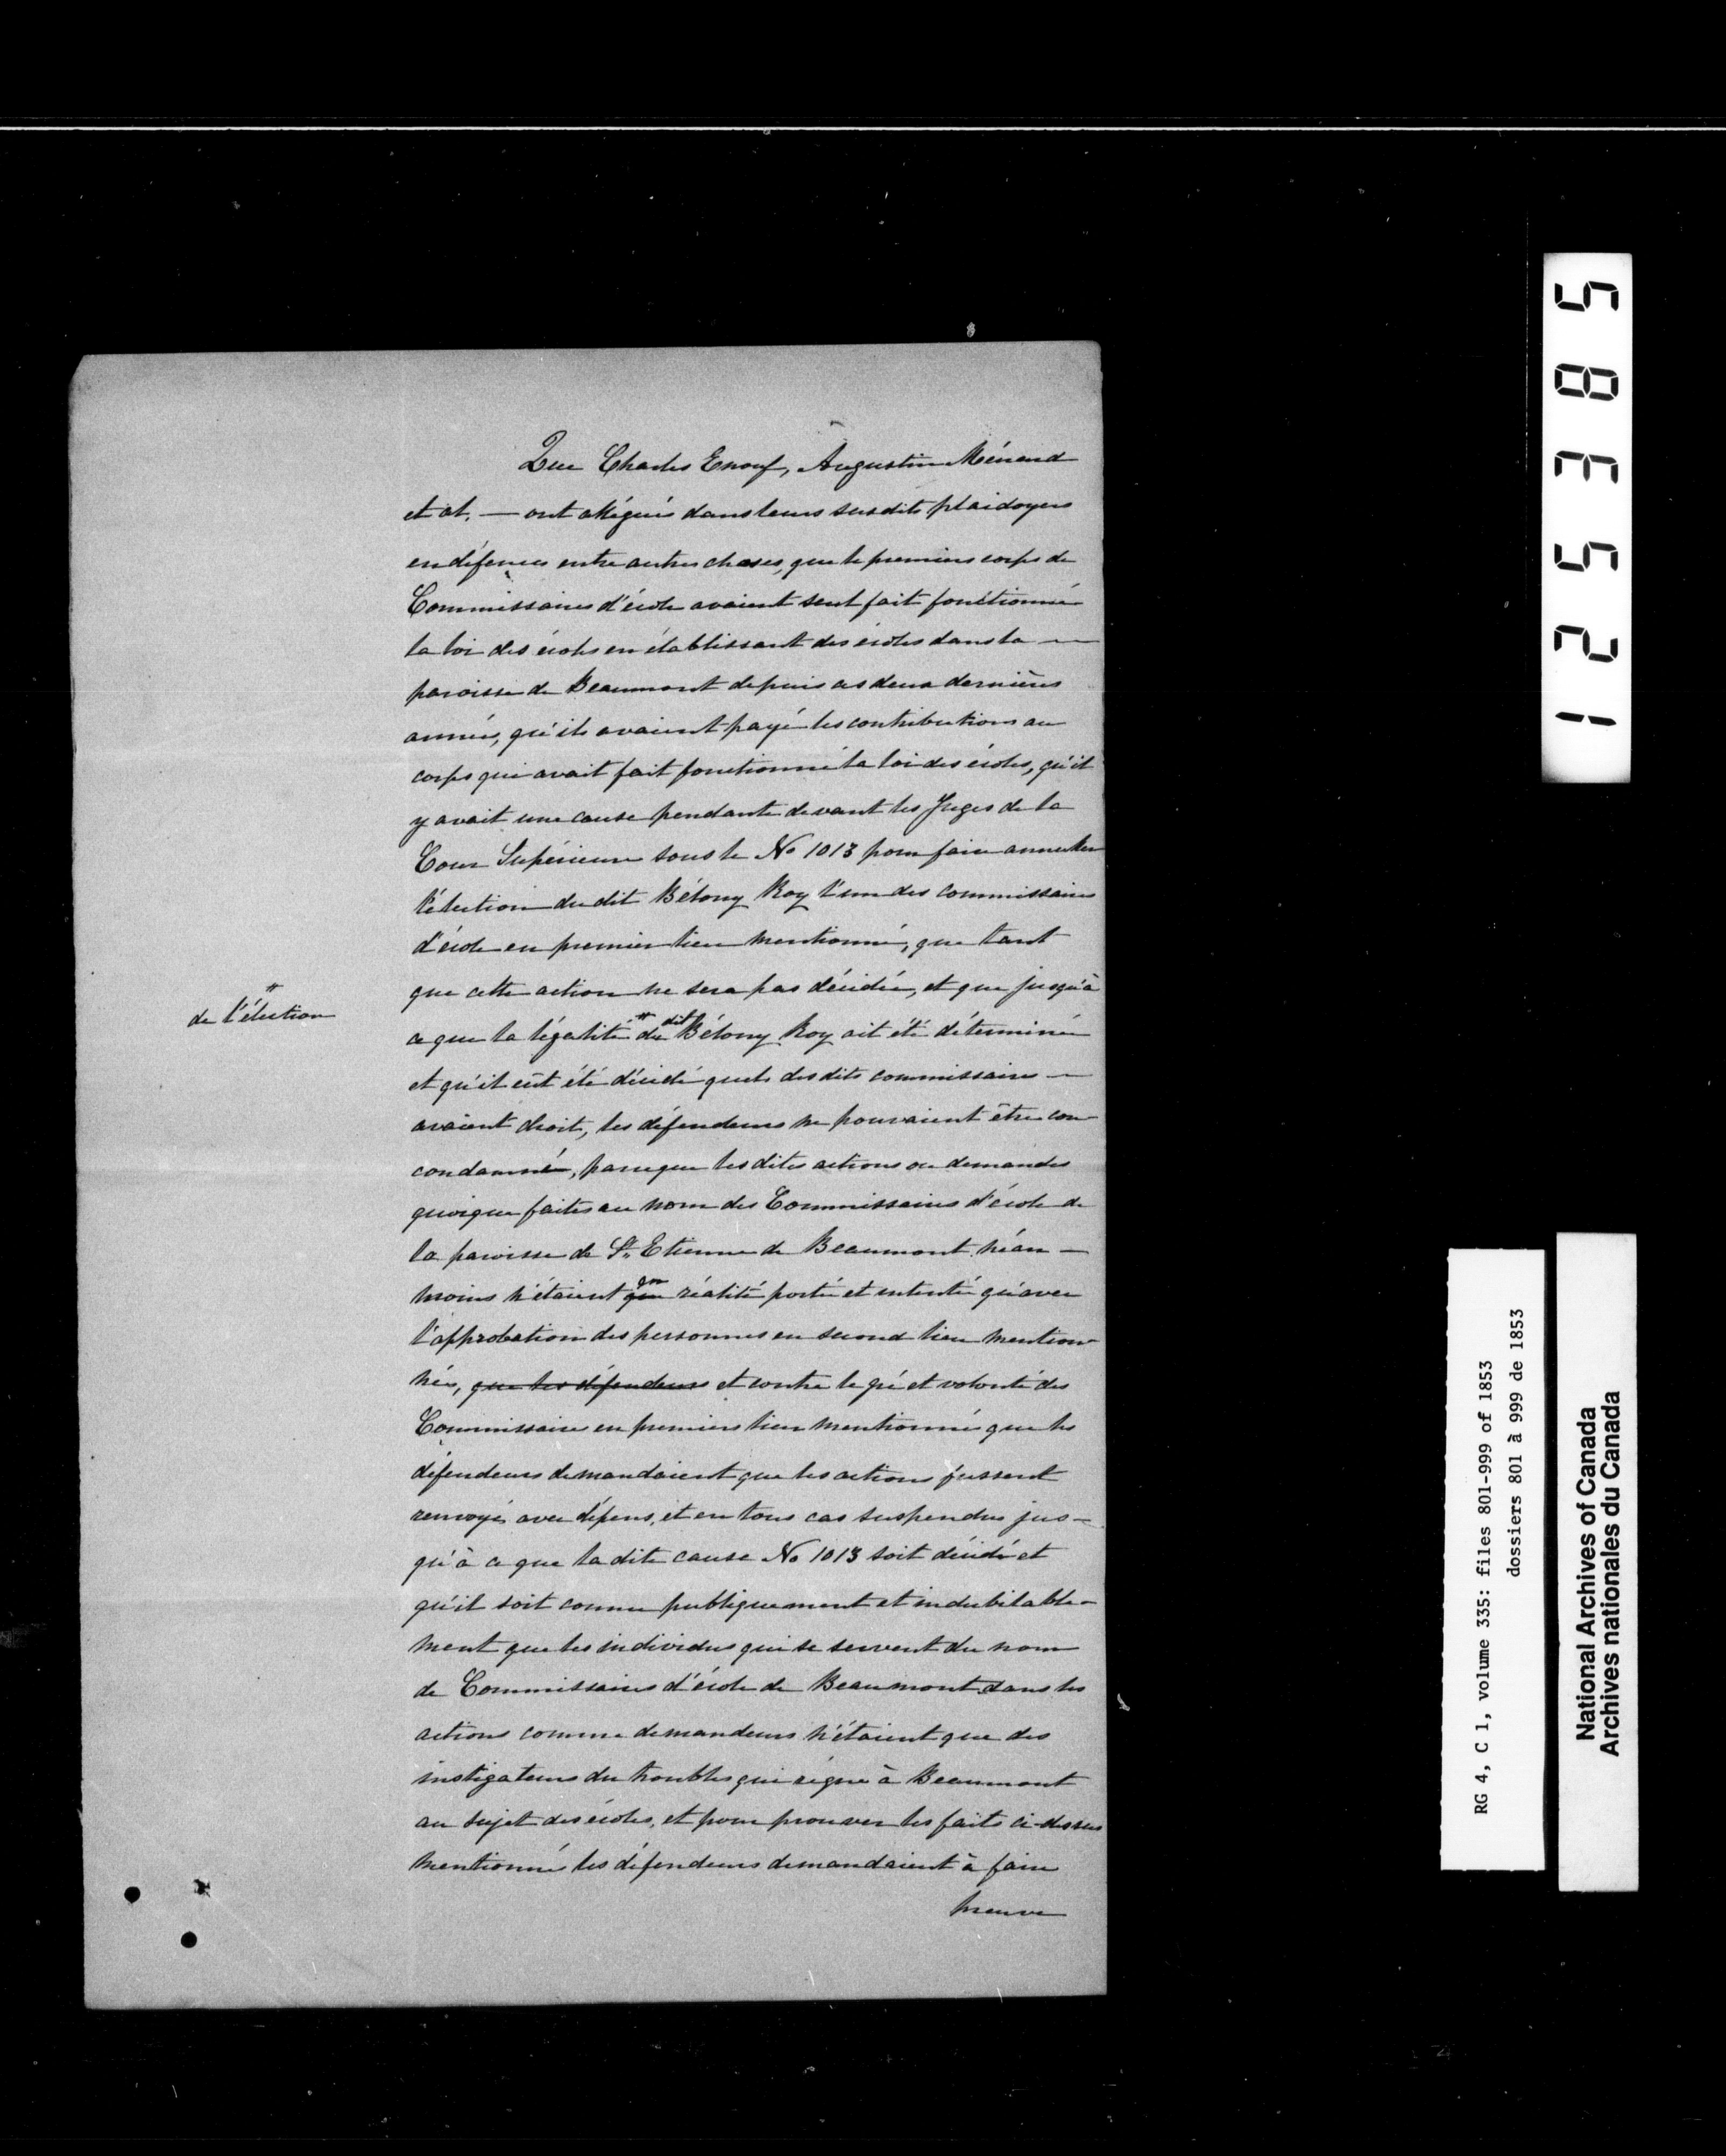 Que Charles Enouf, Augustin Ménard
et al. — ont allégués dans leurs susdits plaidoyers
en défences entre autres choses, que le premiers corps de
Commissaires d'école avaient seul fait fonctionné
la loi des écoles en établissant des écoles dans la —
paroisse de Beaumont depuis ces deux dernières
années, qu'ils avaient payé les contributions au
corps qui avait fait fonctionné la loi des écoles, qu'il
y avait une cause pendante devant les Juges de la
Cour Supérieure sous le No 1013 pour faire annuler
l'élection du dit Bélony Roy l'un des commissaires
d'école en premier lieu mentionné, que tant
que cette action ne sera pas décidée, et que jusqu'à
#
de l'élection
ce que la légalité # du dit Bélony Roy ait été déterminé
et qu'il eût été décidé quels desdits commissaires —
avaient droit, les défendeurs ne pouvaient être con-
condamné, parceque les dites actions ou demandes
quoique faites au nom des Commissaires d'école de
la paroisse de St. Etienne de Beaumont néan —
moins n'étaient en réalité porté et intenté qu'avec
l'approbation des personnes en second lieu mention-
nés, que les défendeurs et contre le gré et volonté des
Commissaires en premiers lieu mentionnés que les
défendeurs demandaient que les actions fussent
renvoyés avec dépens, et en tous cas suspendus jus-
qu'à ce que la dite cause No 1013 soit décidé et
qu'il soit connu publiquement et indubitable-
ment que les individus qui se servent du nom
de Commissaires d'école de Beaumont dans les
actions comme demandeurs n'étaient que des
instigateurs du troubles qui règne à Beaumont
au sujet des écoles, et pour prouver les faits ci-dessus
mentionnés les défendeurs demandaient à faire
preuve
125385
RG 4, C 1, volume 335: files 801-999 of 1853
dossiers 801 à 999 de 1853
National Archives of Canada
Archives nationales du Canada